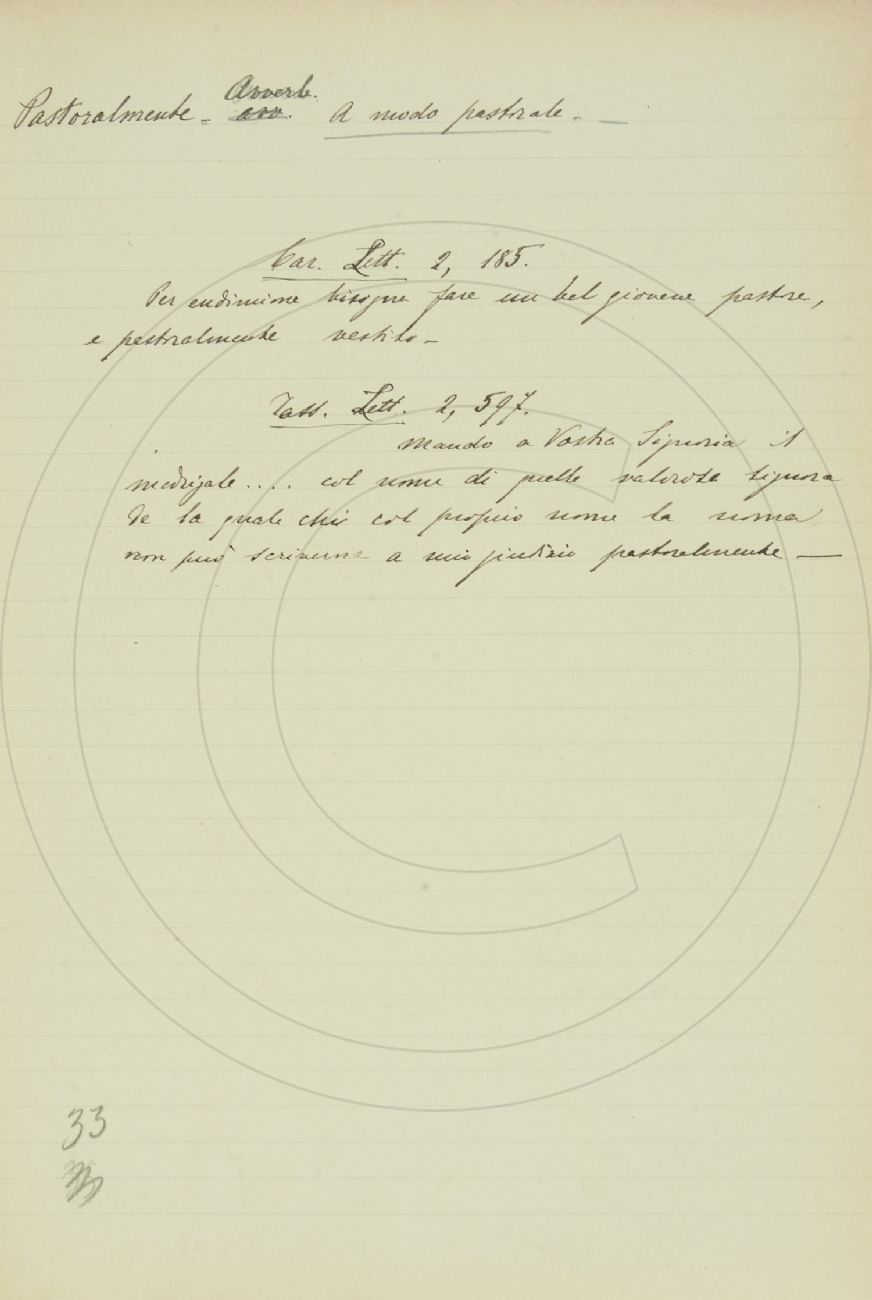 Pastoralmente. Avverb. A modo pastorale. —
Car. Lett. 2, 185.
Per endimione bisogna fare un bel giovene pastore,
e pastoralmente vestito —
Tass. Lett. 2, 597.
Mando a Vostra Signoria il
madrigale.... col nome di quella valorosa signora
de la quale chi col propio nome la noma
non può scriverne a mio giudizio pastoralmente —
33